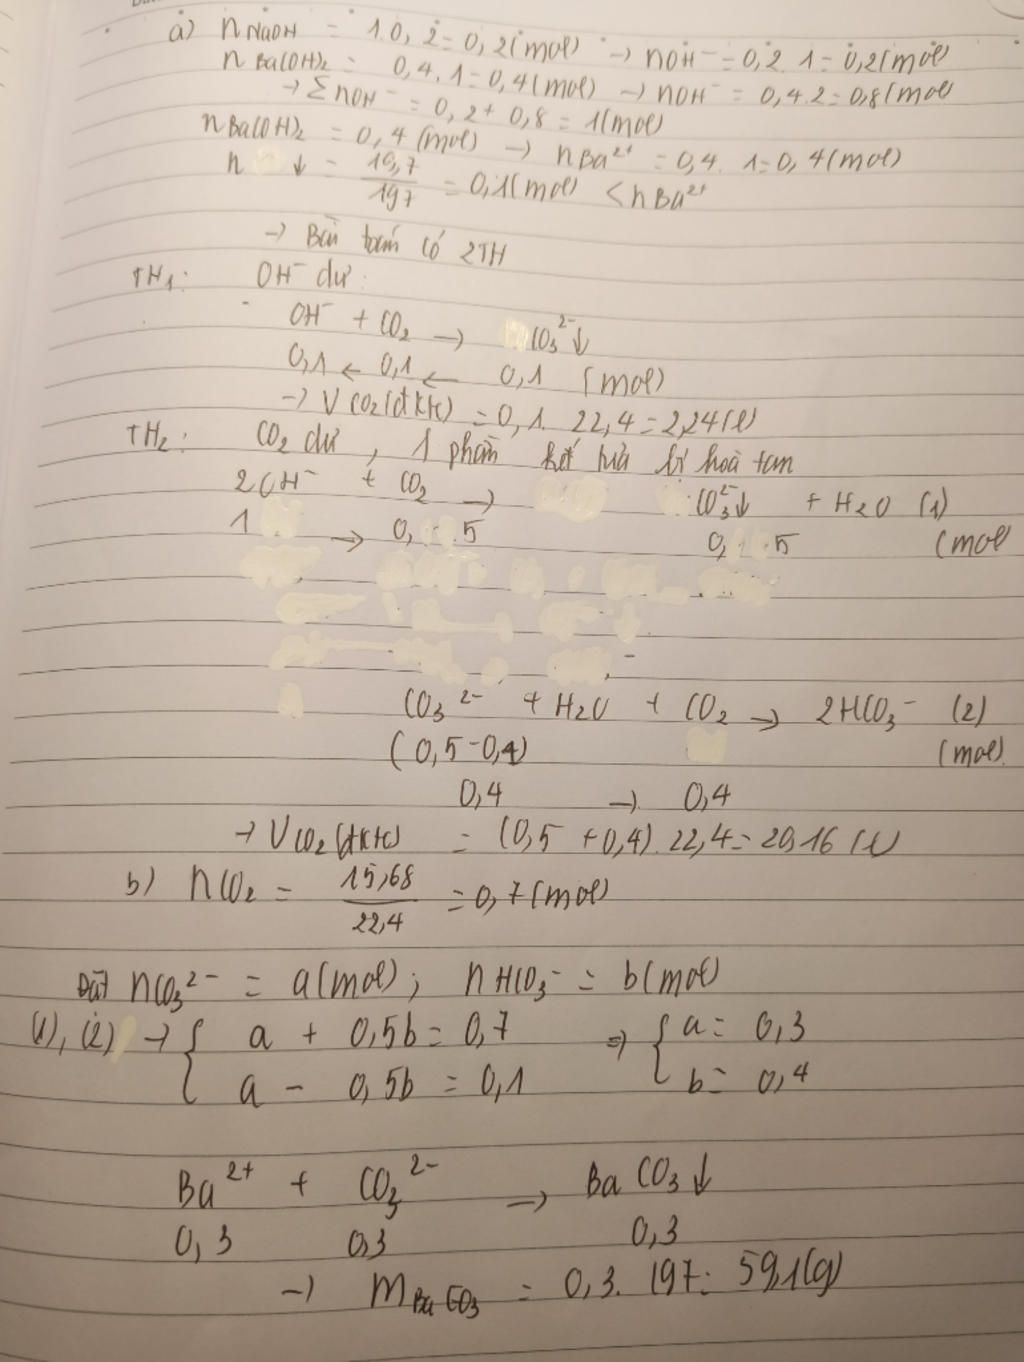 a) nNaOH = 1.0,2=0,2(mol) → nOH⁻ = 0,2.1=0,2(mol
nBa(OH)₂ = 0,4.1=0,4(mol) → nOH⁻ = 0,4.2=0,8(mol
→ ΣnOH⁻ = 0,2+0,8 = 1(mol)
nBa(OH)₂ = 0,4(mol) → nBa²⁺ = 0,4.1=0,4(mol)
n ↓ = 19,7/197 = 0,1(mol) < nBa²⁺
→ Bài toán có 2TH
TH₁: OH⁻ dư:
OH⁻ + CO₂ → CO₃²⁻↓
0,1 ← 0,1 ← 0,1 (mol)
→ VCO₂(đktc) = 0,1.22,4=2,24(l)
TH₂: CO₂ dư, 1 phần kết tủa bị hoà tan
2OH⁻ + CO₂ → CO₃²⁻↓ + H₂O (1)
1 → 0,5 0,5 (mol
CO₃²⁻ + H₂O + CO₂ → 2HCO₃⁻ (2)
(0,5-0,4) (mol)
0,4 → 0,4
→ VCO₂(đktc) = (0,5+0,4).22,4=20,16(l)
b) nCO₂ = 15,68/22,4 = 0,7(mol)
Đặt nCO₃²⁻ = a(mol); nHCO₃⁻ = b(mol)
(1),(2) → { a + 0,5b = 0,7 ⇒ { a = 0,3
a - 0,5b = 0,1 b = 0,4
Ba²⁺ + CO₃²⁻ → BaCO₃↓
0,3 0,3 0,3
→ mBaCO₃ = 0,3.197= 59,1(g)